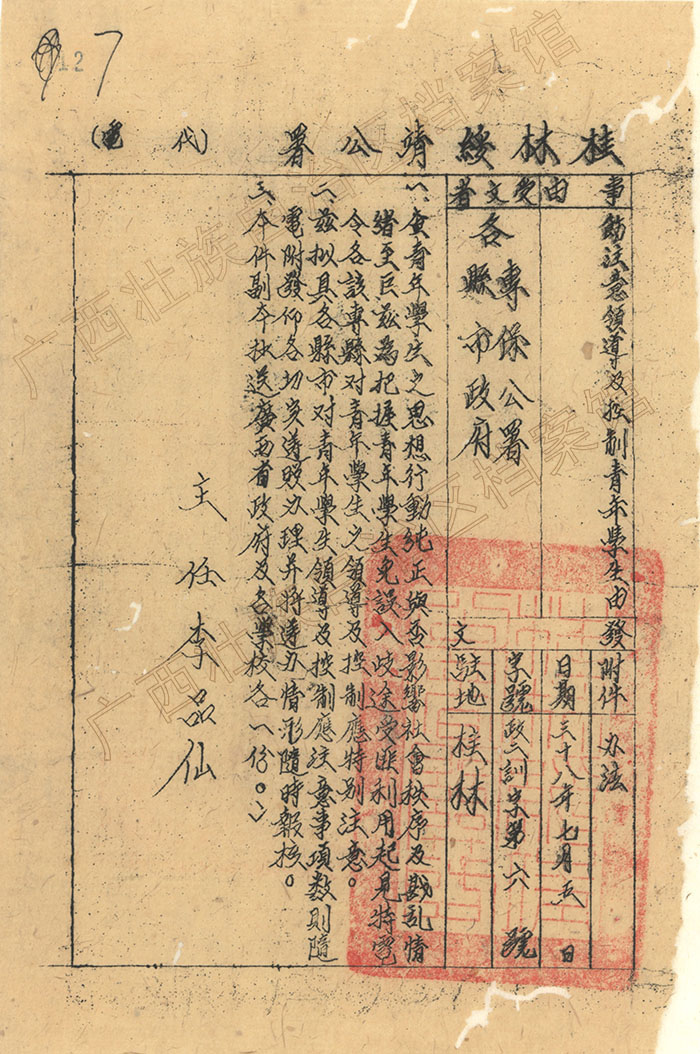 127
桂林綏靖公署（代電）
事由
飭注意領導及控制青年學生由
受文者
各專保公署
縣市政府
發文
附件
办法
日期
三十八年七月五日
字號
政二訓字第六號
駐地
桂林
一、查青年學生之思想行動純正與否影響社會秩序及戡乱情
緒至巨茲為把握青年學生免誤入歧途受匪利用起見特電
令各該專縣对青年學生之領導及控制應特别注意。
二、茲拟具各縣市对青年學生領導及控制應注意事項数則隨
電附發仰各切实遵照办理并将遵办情形隨時報核。
三、本件副本抄送廣西省政府及各學校各一份。
主任李品仙
广西壮族自治区档案馆
广西壮族自治区档案馆